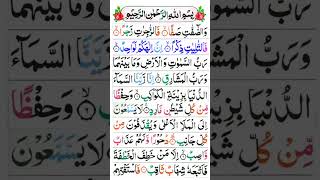 بِسْمِ اللهِ الرَّحْمٰنِ الرَّحِيْمِ
وَالصّٰٓفّٰتِ صَفًّا ۙ فَالزّٰجِرٰتِ زَجْرًا ۙ
فَالتّٰلِيٰتِ ذِكْرًا ۙ اِنَّ اِلٰهَكُمْ لَوَاحِدٌ ؕ
رَبُّ السَّمٰوٰتِ وَالْاَرْضِ وَمَا بَيْنَهُمَا
وَرَبُّ الْمَشَارِقِ ؕ اِنَّا زَيَّنَّا السَّمَآءَ
الدُّنْيَا بِزِيْنَةِ ۣالْكَوَاكِبِ ۙ وَحِفْظًا
مِّنْ كُلِّ شَيْطٰنٍ مَّارِدٍ ۚ لَا يَسَّمَّعُوْنَ
اِلَى الْمَلَاِ الْاَعْلٰى وَيُقْذَفُوْنَ مِنْ
كُلِّ جَانِبٍ ۖ دُحُوْرًا وَّلَهُمْ عَذَابٌ
وَّاصِبٌ ۙ اِلَّا مَنْ خَطِفَ الْخَطْفَةَ
فَاَتْبَعَهٗ شِهَابٌ ثَاقِبٌ ۚ فَاسْتَفْتِهِمْ